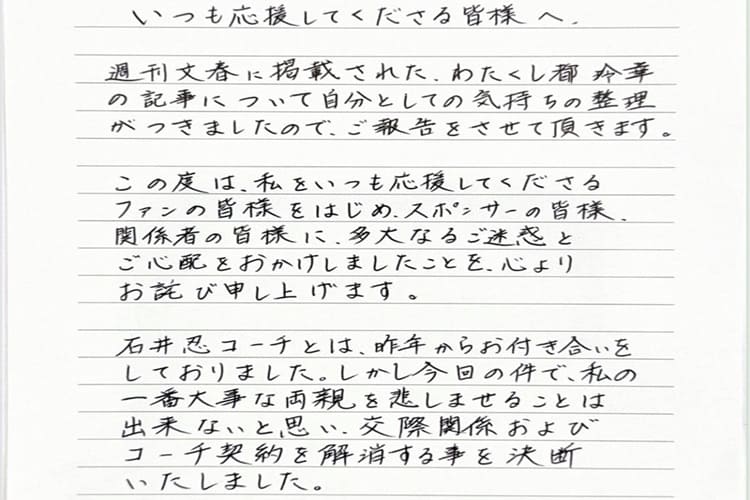 いつも応援してくださる皆様へ.
週刊文春に掲載された、わたくし都 玲華
の記事について自分としての気持ちの整理
がつきましたので、ご報告をさせて頂きます。
この度は、私をいつも応援してくださる
ファンの皆様をはじめ、スポンサーの皆様、
関係者の皆様に、多大なるご迷惑と
ご心配をおかけしましたことを、心より
お詫び申し上げます。
石井忍コーチとは、昨年からお付き合いを
しておりました。しかし今回の件で、私の
一番大事な両親を悲しませることは
出来ないと思い、交際関係および
コーチ契約を解消する事を決断
いたしました。